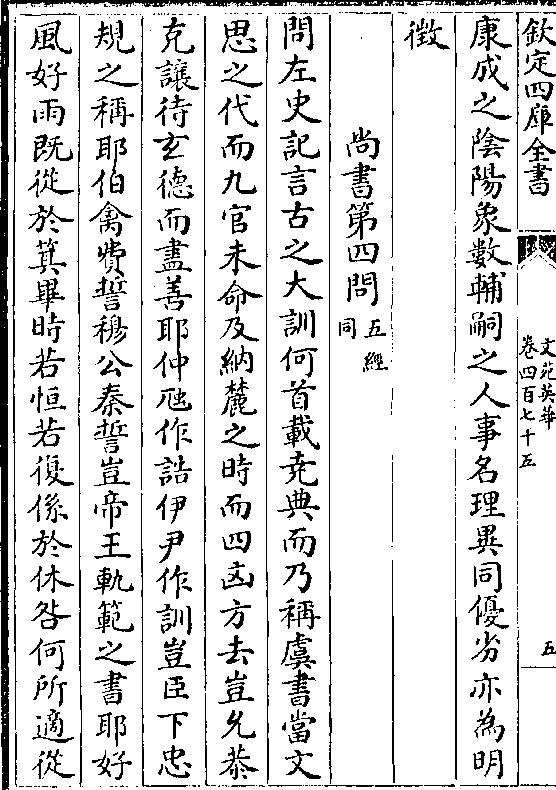 欽定四庫全書
文苑英華
卷四百七十五
五
康成之陰陽象數輔嗣之人事名理異同優劣亦為明
徴
尚書第四問五經同
問左史記言古之大訓何首載堯典而乃稱虞書當文
思之代而九官未命及納麓之時而四凶方去豈允恭
克讓待玄德而盡善耶仲虺作誥伊尹作訓豈臣下忠
規之稱耶伯禽費誓穆公秦誓豈帝王軌範之書耶好
風好雨既從於箕畢時若恒若復係於休咎何所適從